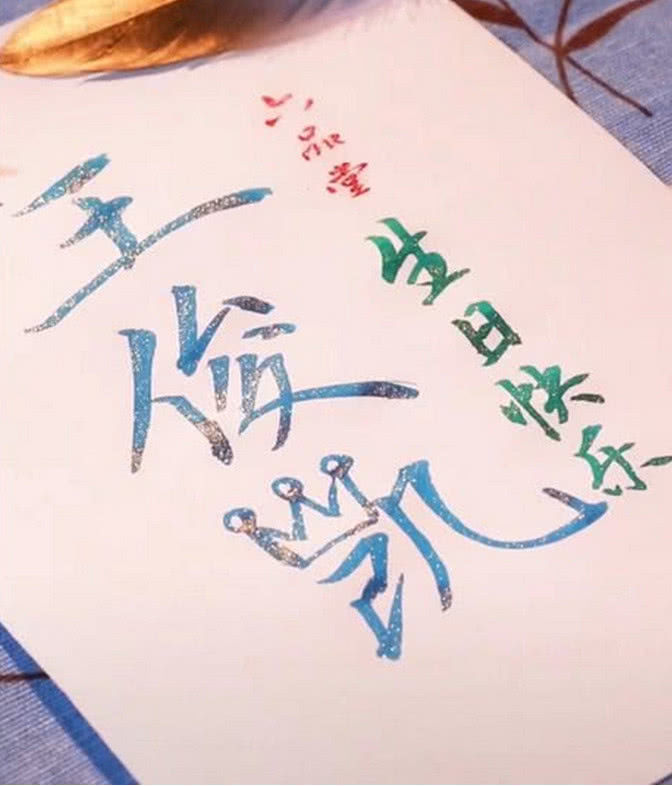 王俊凯
生日快乐
六品堂